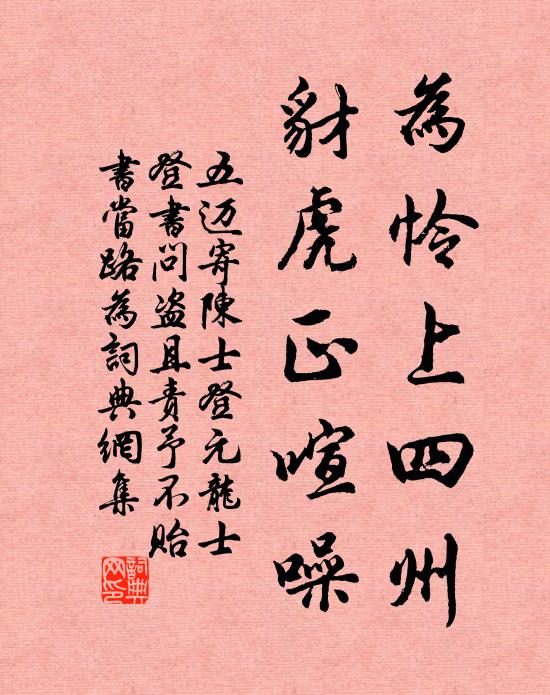 為怜上四州
豺虎正喧噪
五迈寄陳士登元龍士
登書問盗且責予不貽
書當路為詞典網集
詞典
网印